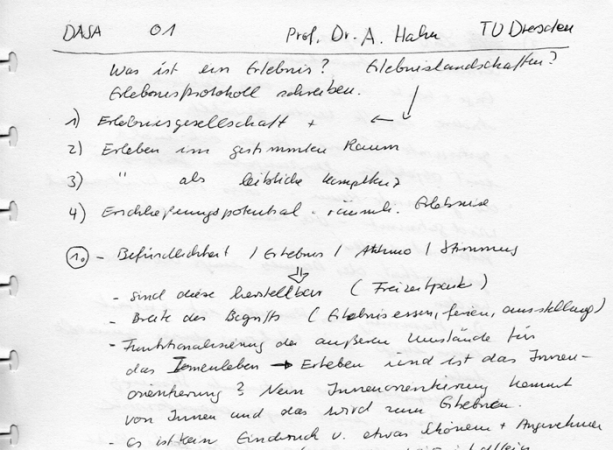 DASA 01 Prof. Dr. A. Hahn TU Dresden
Was ist ein Erlebnis? Erlebnislandschaften?
Erlebnisprotokoll schreiben.
1) Erlebnisgesellschaft + ←
2) Erleben im gestimmten Raum
3) " als leibliche Kompetenz
4) Erschließungspotential räuml. Erlebnisse
1. - Befindlichkeit / Erlebnis / Atmo / Stimmung
- sind diese herstellbar (Freizeitpark)
- Breite des Begriffs (Erlebnisessen, ferien, ausstellung)
- Funktionalisierung der äußeren Umstände für
das Innenleben → Erleben und ist das Innen-
orientierung? Nein Innenorientierung kommt
von Innen und das wird zum Erlebnis.
- Es ist kein Eindruck v. etwas Schönem + Angenehmen